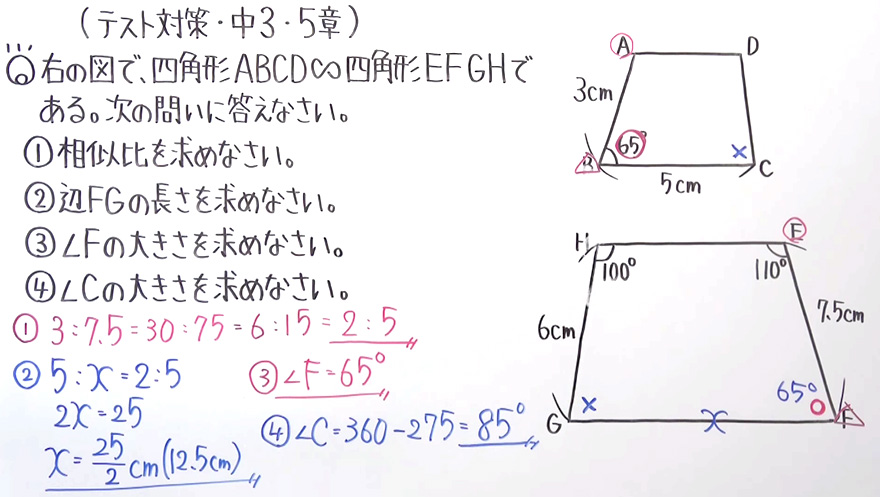 (テスト対策・中3・5章)
右の図で、四角形ABCD∽四角形EFGHで
ある。次の問いに答えなさい。
①相似比を求めなさい。
②辺FGの長さを求めなさい。
③∠Fの大きさを求めなさい。
④∠Cの大きさを求めなさい。
① 3:7.5=30:75=6:15=2:5
② 5:x=2:5
2x=25
x=25/2cm(12.5cm)
③∠F=65°
④∠C=360-275=85°
A
D
3cm
65°
×
B
C
5cm
H
E
100°
110°
6cm
7.5cm
65°
×
G
x
F